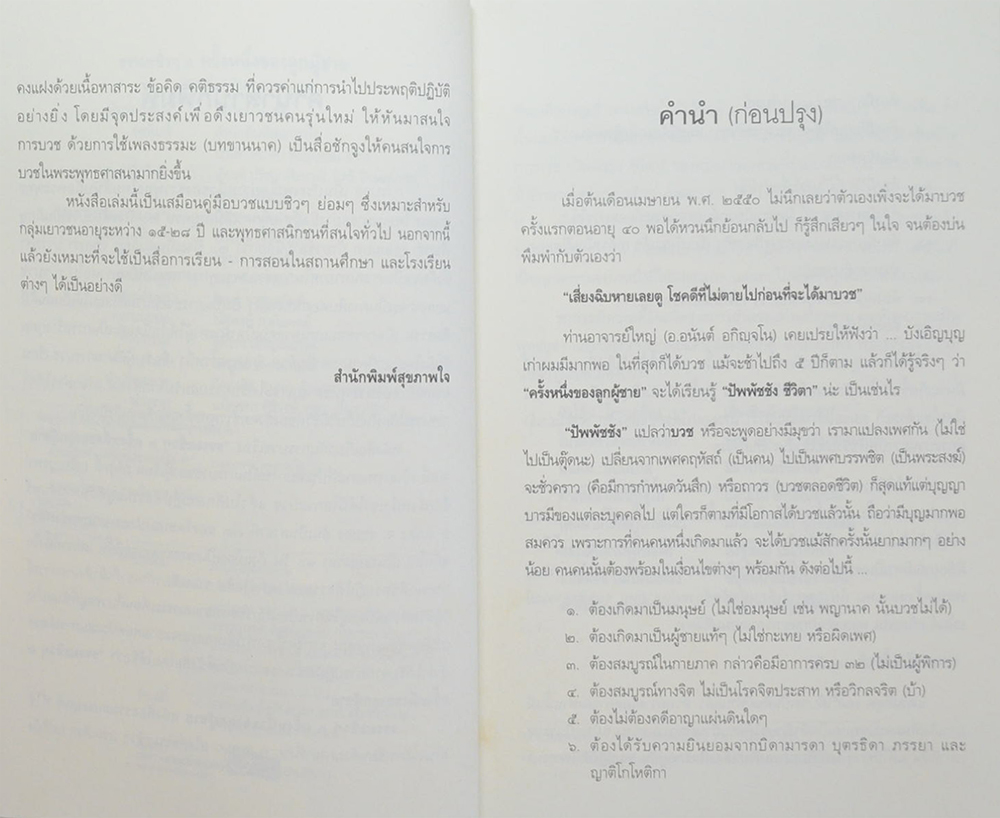 คงแฝงด้วยเนื้อหาสาระ ข้อคิด คติธรรม ที่ควรค่าแก่การนำไปประพฤติปฏิบัติ
อย่างยิ่ง โดยมีจุดประสงค์เพื่อดึงเยาวชนคนรุ่นใหม่ ให้หันมาสนใจ
การบวช ด้วยการใช้เพลงธรรมะ (บทขานนาค) เป็นสื่อชักจูงให้คนสนใจการ
บวชในพระพุทธศาสนามากยิ่งขึ้น
หนังสือเล่มนี้เป็นเสมือนคู่มือบวชแบบชิวๆ ย่อมๆ ซึ่งเหมาะสำหรับ
กลุ่มเยาวชนอายุระหว่าง ๑๕-๒๘ ปี และพุทธศาสนิกชนที่สนใจทั่วไป นอกจากนี้
แล้วยังเหมาะที่จะใช้เป็นสื่อการเรียน - การสอนในสถานศึกษา และโรงเรียน
ต่างๆ ได้เป็นอย่างดี
สำนักพิมพ์สุขภาพใจ
คำนำ (ก่อนปรุง)
เมื่อต้นเดือนเมษายน พ.ศ. ๒๕๕๐ ไม่นึกเลยว่าตัวเองเพิ่งจะได้มาบวช
ครั้งแรกตอนอายุ ๔๐ พอได้หวนนึกย้อนกลับไป ก็รู้สึกเสียวๆ ในใจ จนต้องบ่น
พึมพำกับตัวเองว่า
“เสี่ยงฉิบหายเลยตู โชคดีที่ไม่ตายไปก่อนที่จะได้มาบวช”
ท่านอาจารย์ใหญ่ (อ.อนันต์ อกิญจโน) เคยเปรยให้ฟังว่า ... บังเอิญบุญ
เก่าผมมีมากพอ ในที่สุดก็ได้บวช แม้จะช้าไปถึง ๕ ปีก็ตาม แล้วก็ได้รู้จริงๆ ว่า
“ครั้งหนึ่งของลูกผู้ชาย” จะได้เรียนรู้ “ปัพพัชชัง ชีวิตา” น่ะ เป็นเช่นไร
“ปัพพัชชัง” แปลว่าบวช หรือจะพูดอย่างมีมุขว่า เรามาแปลงเพศกัน (ไม่ใช่
ไปเป็นตุ๊ดนะ) เปลี่ยนจากเพศคฤหัสถ์ (เป็นคน) ไปเป็นเพศบรรพชิต (เป็นพระสงฆ์)
จะชั่วคราว (คือมีการกำหนดวันสึก) หรือถาวร (บวชตลอดชีวิต) ก็สุดแท้แต่บุญญา
บารมีของแต่ละบุคคลไป แต่ใครก็ตามที่มีโอกาสได้บวชแล้วนั้น ถือว่ามีบุญมากพอ
สมควร เพราะการที่คนคนหนึ่งเกิดมาแล้ว จะได้บวชแม้สักครั้งนั้นยากมากๆ อย่าง
น้อย คนคนนั้นต้องพร้อมในเงื่อนไขต่างๆ พร้อมกัน ดังต่อไปนี้ ...
๑. ต้องเกิดมาเป็นมนุษย์ (ไม่ใช่อมนุษย์ เช่น พญานาค นั้นบวชไม่ได้)
๒. ต้องเกิดมาเป็นผู้ชายแท้ๆ (ไม่ใช่กะเทย หรือผิดเพศ)
๓. ต้องสมบูรณ์ในกายภาค กล่าวคือมีอาการครบ ๓๒ (ไม่เป็นผู้พิการ)
๔. ต้องสมบูรณ์ทางจิต ไม่เป็นโรคจิตประสาท หรือวิกลจริต (บ้า)
๕. ต้องไม่ต้องคดีอาญาแผ่นดินใดๆ
๖. ต้องได้รับความยินยอมจากบิดามารดา บุตรธิดา ภรรยา และ
ญาติโกโหติกา